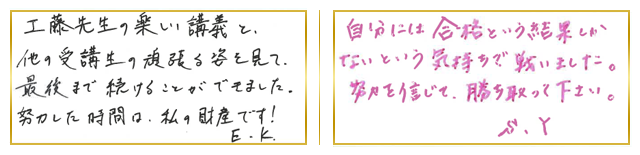 工藤先生の楽しい講義と、
他の受講生の頑張る姿を見て、
最後まで続けることができました。
努力した時間は、私の財産です！
E.K.
自分には合格という結果しか
ないという気持ちで戦いました。
努力を信じて、勝ち取って下さい。
S.Y